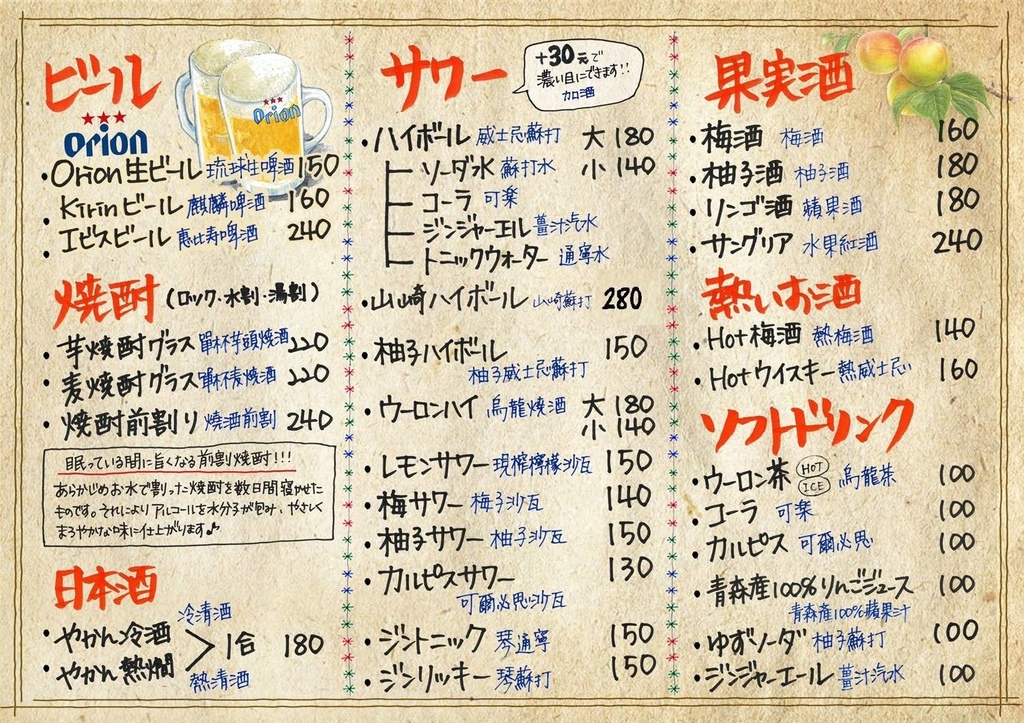 ビール
Orion
Orion
・Orion生ビール 琉球生啤酒 150
・Kirinビール 麒麟啤酒 160
・エビスビール 恵比寿啤酒 240
焼酎(ロック・水割・湯割)
・芋焼酎グラス 單杯芋頭燒酒 220
・麦焼酎グラス 單杯麦燒酒 220
・焼酎前割り 燒酒前割 240
眠っている間に旨くなる前割焼酎!!!
あらかじめお水で割った焼酎を数日間寝かせた
ものです。それによりアルコールを水分子が包み、やさしく
まろやかな味に仕上がります♪
日本酒
・やかん冷酒 冷清酒
・やかん熱燗 熱清酒
1合 180
サワー
+30元で
濃い目にできます!!
加酒
・ハイボール 威士忌蘇打 大 180
ソーダ水 蘇打水 小 140
コーラ 可楽
ジンジャーエル 薑汁汽水
トニックウォーター 通寧水
・山崎ハイボール 山崎蘇打 280
・柚子ハイボール 150
柚子威士忌蘇打
・ウーロンハイ 烏龍燒酒 大 180
小 140
・レモンサワー 現榨檸檬沙瓦 150
・梅サワー 梅子沙瓦 140
・柚子サワー 柚子沙瓦 150
・カルピスサワー 130
可爾必思沙瓦
・ジントニック 琴通寧 150
・ジンリッキー 琴蘇打 150
果実酒
・梅酒 梅酒 160
・柚子酒 柚子酒 180
・リンゴ酒 蘋果酒 180
・サングリア 水果紅酒 240
熱いお酒
・Hot梅酒 熱梅酒 140
・Hotウイスキー 熱威士忌 160
ソフトドリンク
・ウーロン茶 HOT ICE 烏龍茶 100
・コーラ 可楽 100
・カルピス 可爾必思 100
・青森産100%りんごジュース 100
青森産100%蘋果汁
・ゆずソーダ 柚子蘇打 100
・ジンジャーエール 薑汁汽水 100